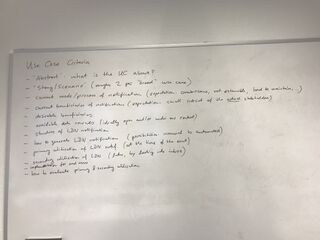 Use Case Criteria
- "Abstract" what is the UC about?
- "Story/Scenario" (maybe 2 per "broad" use case)
- current mode/process of notification (expectation: cumbersome, not extensible, hard to maintain, ..)
- current beneficiaries of notifications (expectation: small subset of the actual stakeholders)
- desirable beneficiaries
- available data sources (ideally open and/or under our control)
- structure of LDN notification
- how to generate LDN notifications (possibilities: manual to automated)
- primary utilisation of LDN notif. (at the time of the event)
- secondary utilisation of LDN (later, by looking into inbox)
- for end users
- how to evaluate primary & secondary utilisation